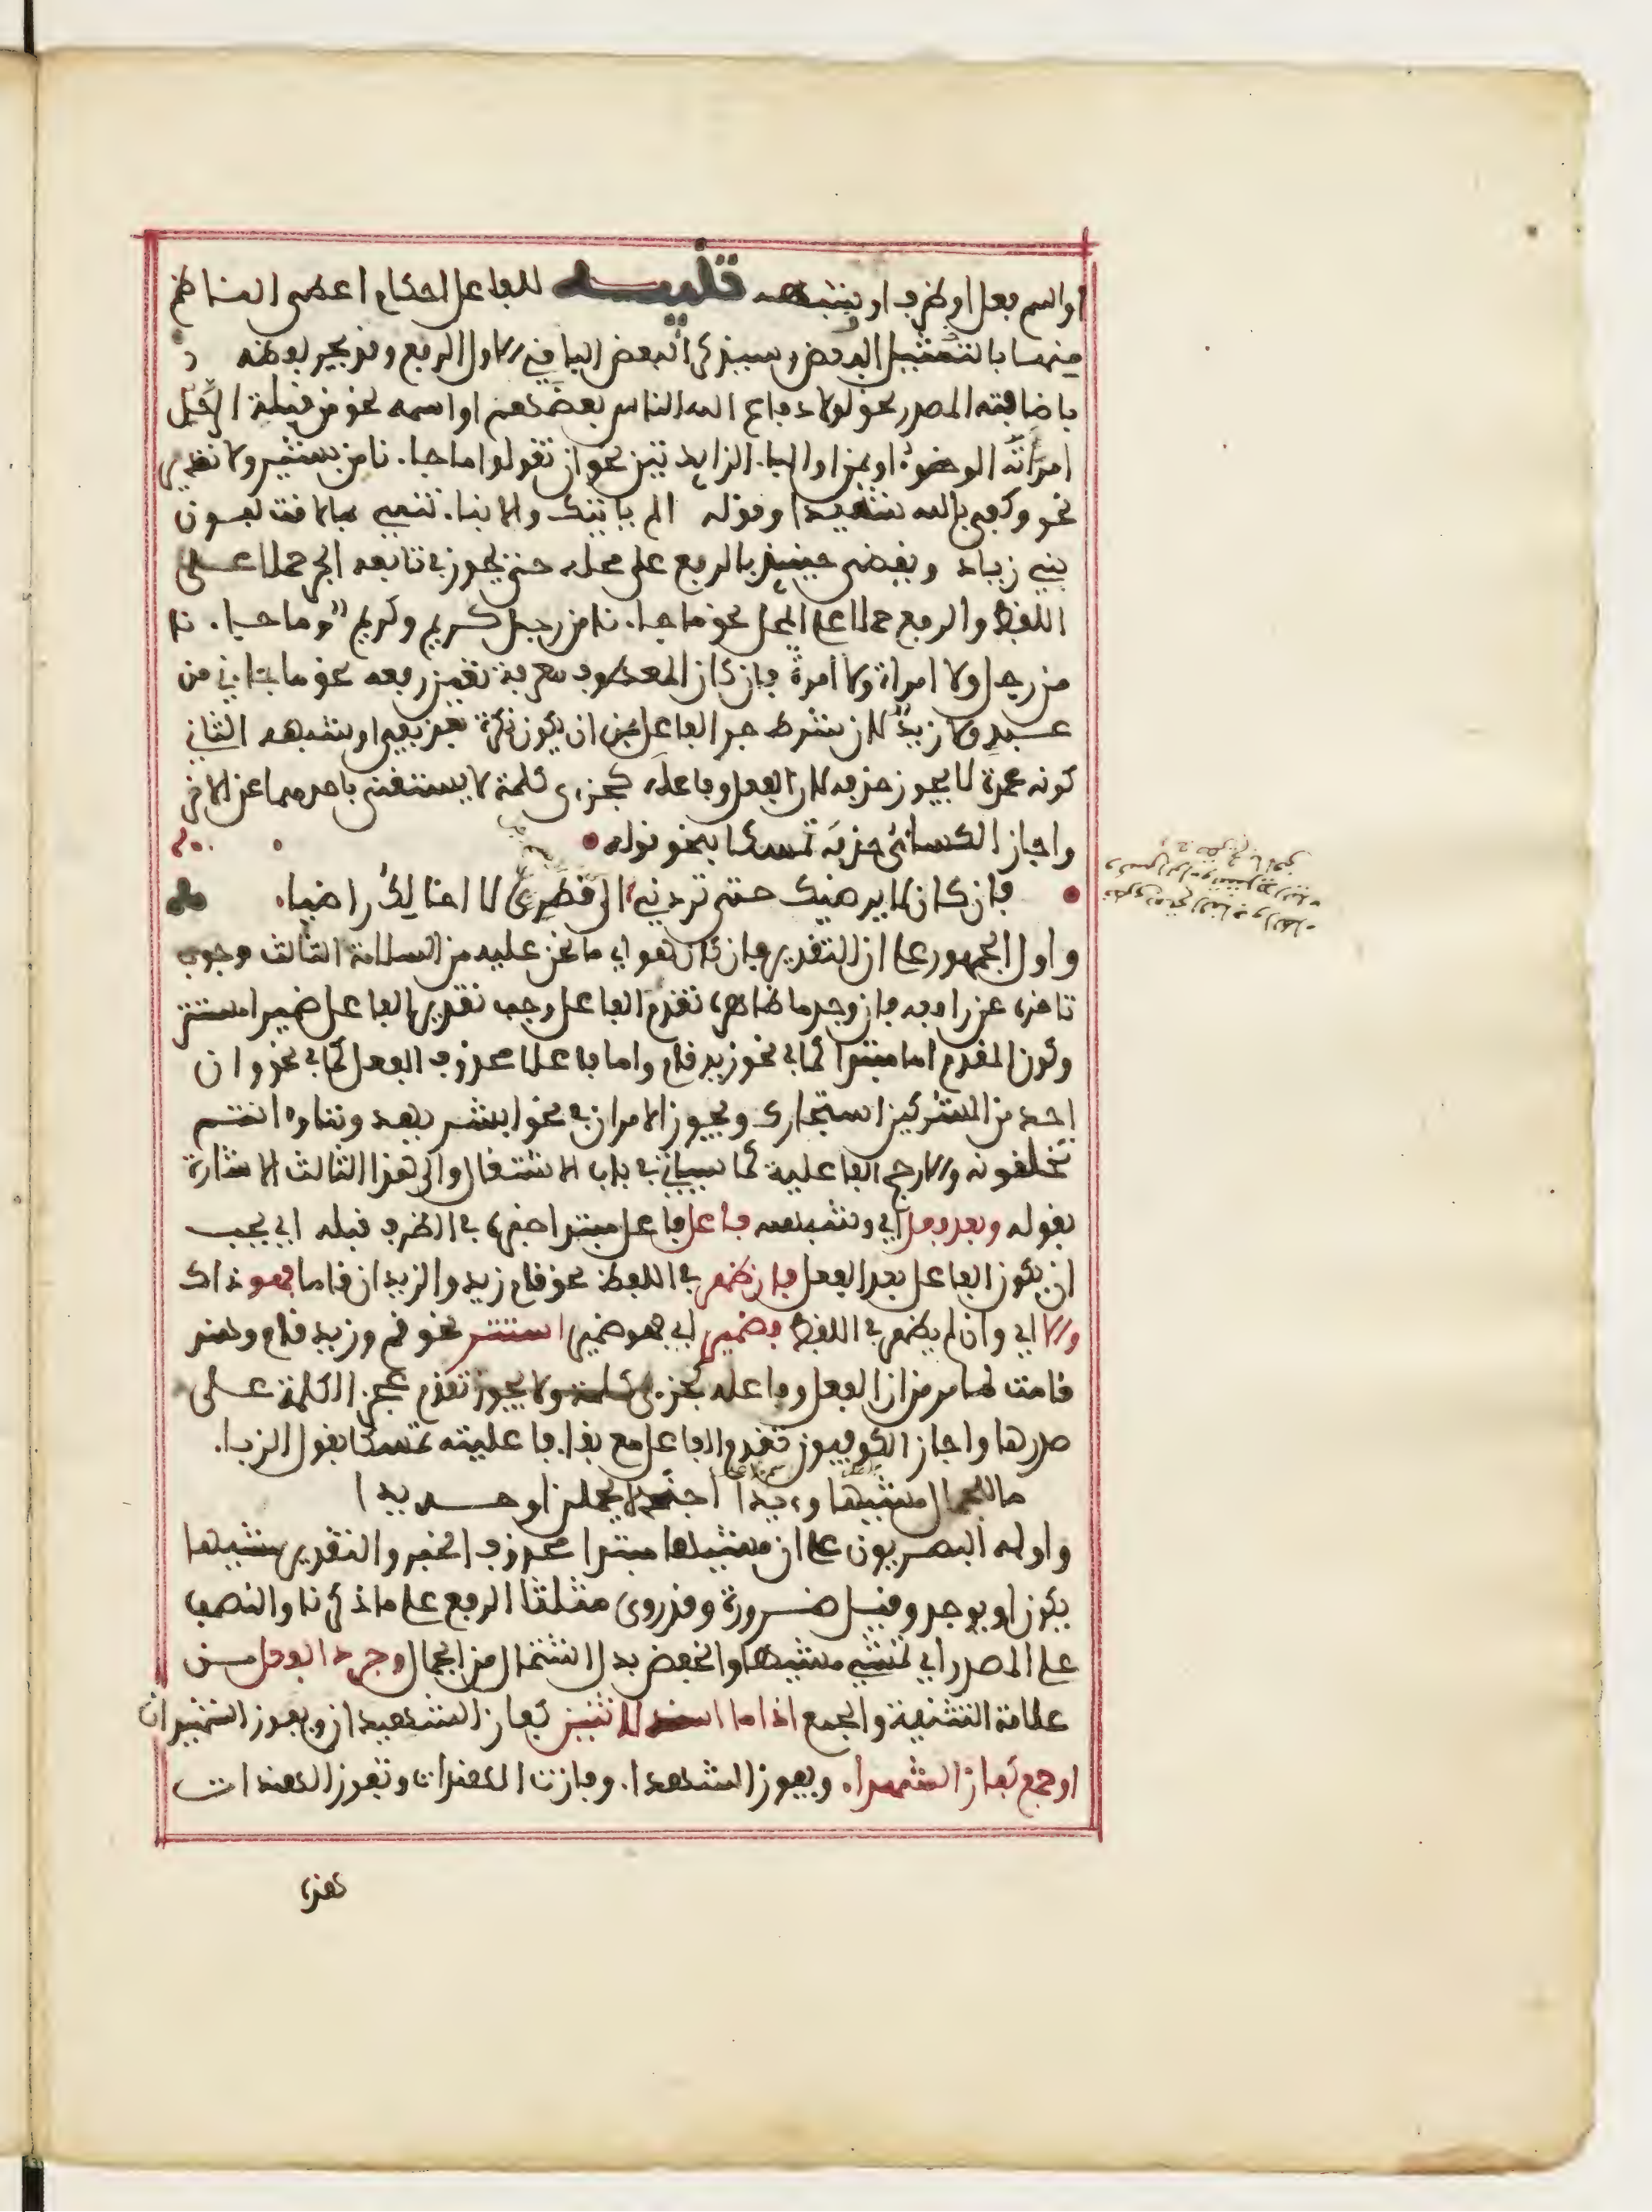 او اسم فعل او ظرف او شبهه تنبيه للفاعل احكام اعطى الناظم
منها بالتمثيل البعض وسيذكر البعض الباقي الاول الرفع وقد يجر لفظه
باضافة المصدر نحو لولا دفاع الله الناس بعضهم او اسمه نحو من قبلة الرجل
امراته الوضوء او بمن او الباء الزايدتين نحو ان تقولوا ما جاءنا من بشير ولا نذير
نحو وكفى بالله شهيدا وقوله الم ياتيك والانباء تنمي بما لاقت لبون
بني زياد ويقضى حينيذ بالرفع على محله حتى يجوز في تابعه الجر حملا على
اللفظ والرفع حملا على المحل نحو ما جاءنا من رجل كريم وكريم وما جاءنا
من رجل ولا امراة ولا امرأة فان كان المعطوف معرفة تعين رفعه نحو ما جاءني من
عبد ولا زيد لان شرط جر الفاعل بمن ان يكون نكرة بعد نفي او شبهه الثاني
كونه عمدة لا يجوز حذفه لان الفعل وفاعله كجزءي كلمة لا يستغنى باحدهما عن الاخر
واجاز الكسائي حذفه تمسكا بنحو قوله
فان كان لا يرضيك حتى تردني الى قطري لا اخالك راضيا
واول الجمهور على ان التقدير فان كان هو اي ما نحن عليه من السلامة الثالث وجوب
تاخره عن رافعه فان وجد ما ظاهره تقدم الفاعل وجب تقدير الفاعل ضميرا مستترا
وكون المقدم اما مبتدا كما في نحو زيد قام واما فاعلا محذوف الفعل كما في نحو وان
احد من المشركين استجارك ويجوز الامران في نحو ابشر يهدوننا وءانتم
تخلقونه والارجح الفاعلية كما سياتي في باب الاشتغال والى هذا الثالث الاشارة
بقوله وبعد فعل اي وشبهه فاعل فاعل مبتدا خبره في الظرف قبله اي يجب
ان يكون الفاعل بعد الفعل فان ظهر في اللفظ نحو قام زيد والزيدان قاما فهو ذاك
والا اي وان لم يظهر في اللفظ فضمير اي فهو ضمير استتر نحو قم وزيد قام وهند
قامت لما مر من ان الفعل وفاعله كجزءي كلمة ولا يجوز تقدم عجز الكلمة على
صدرها واجاز الكوفيون تقدم الفاعل مع بقاء فاعليته تمسكا بقول الزباء
ما للجمال مشيها وءيدا اجندلا يحملن او حديدا
واوله البصريون على ان مشيها مبتدا محذوف الخبر والتقدير مشيها
يكون او يوجد وقيل ضرورة وقد روى مثلثا الرفع على ما ذكرنا والنصب
على المصدر اي تمشي مشيها والخفض بدل اشتمال من الجمال وجرد الفعل من
علامة التثنية والجمع اذا ما اسند لاثنين كفاز الشهيدان ويفوز الشهيدان
او جمع كفاز الشهدا ويفوز الشهدا وفازت الهندات وتفوز الهندات
هذه